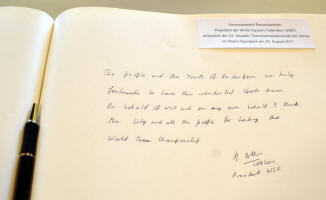 Präsident der World Squash Federation (WSF),
anlässlich der 23. Squash Teamweltmeisterschaft der Herren
im Ahorn-Sportpark am 25. August 2011
The people and the Youth of Paderborn are truly
fortunate to have this wonderful Sports Arena
On behalf of WSF and on my own behalf I thank
the City and all the people for hosting the
World Team Championship.
President WSF.